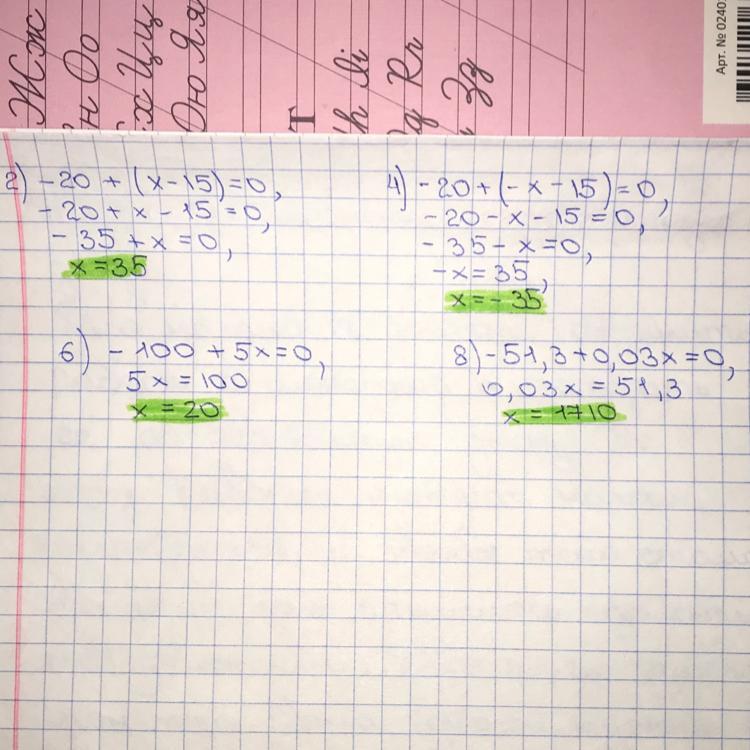 Жж
н Оо
х Цц
Юю Яя
T
h Ii
q Rr
Зз
Арт. № 0240
2) -20 + (x-15)=0,
-20+x-15=0,
-35+x=0,
x=35
4) -20+(-x-15)=0,
-20-x-15=0,
-35-x=0,
-x=35,
x=-35
6) -100+5x=0,
5x=100
x=20
8) -51,3+0,03x=0,
0,03x=51,3
x=1710